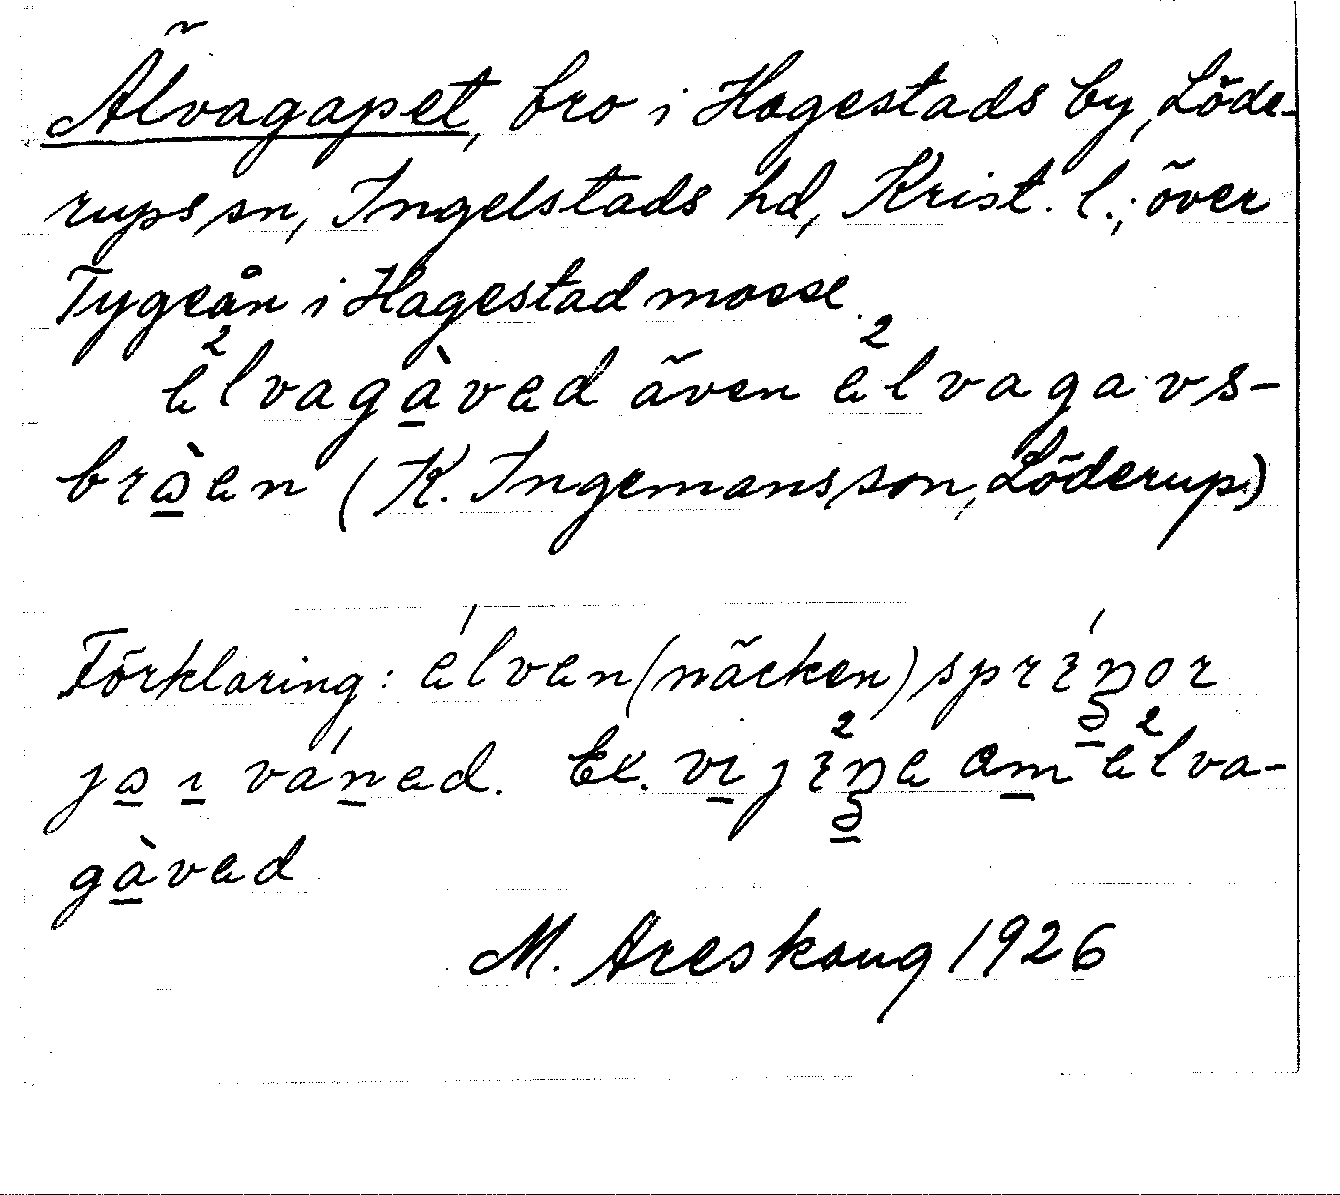 Älvagapet, bro i Hagestads by, Löde-
rups sn, Ingelstads hd, Krist. l.; över
Tygeån i Hagestad mosse.
élvagàved även élvagavs-
bràen (K. Ingemansson, Löderup)
Förklaring: élven (näcken)
i váned. Ex. vi am élva-
gàved
M. Areskoug 1926